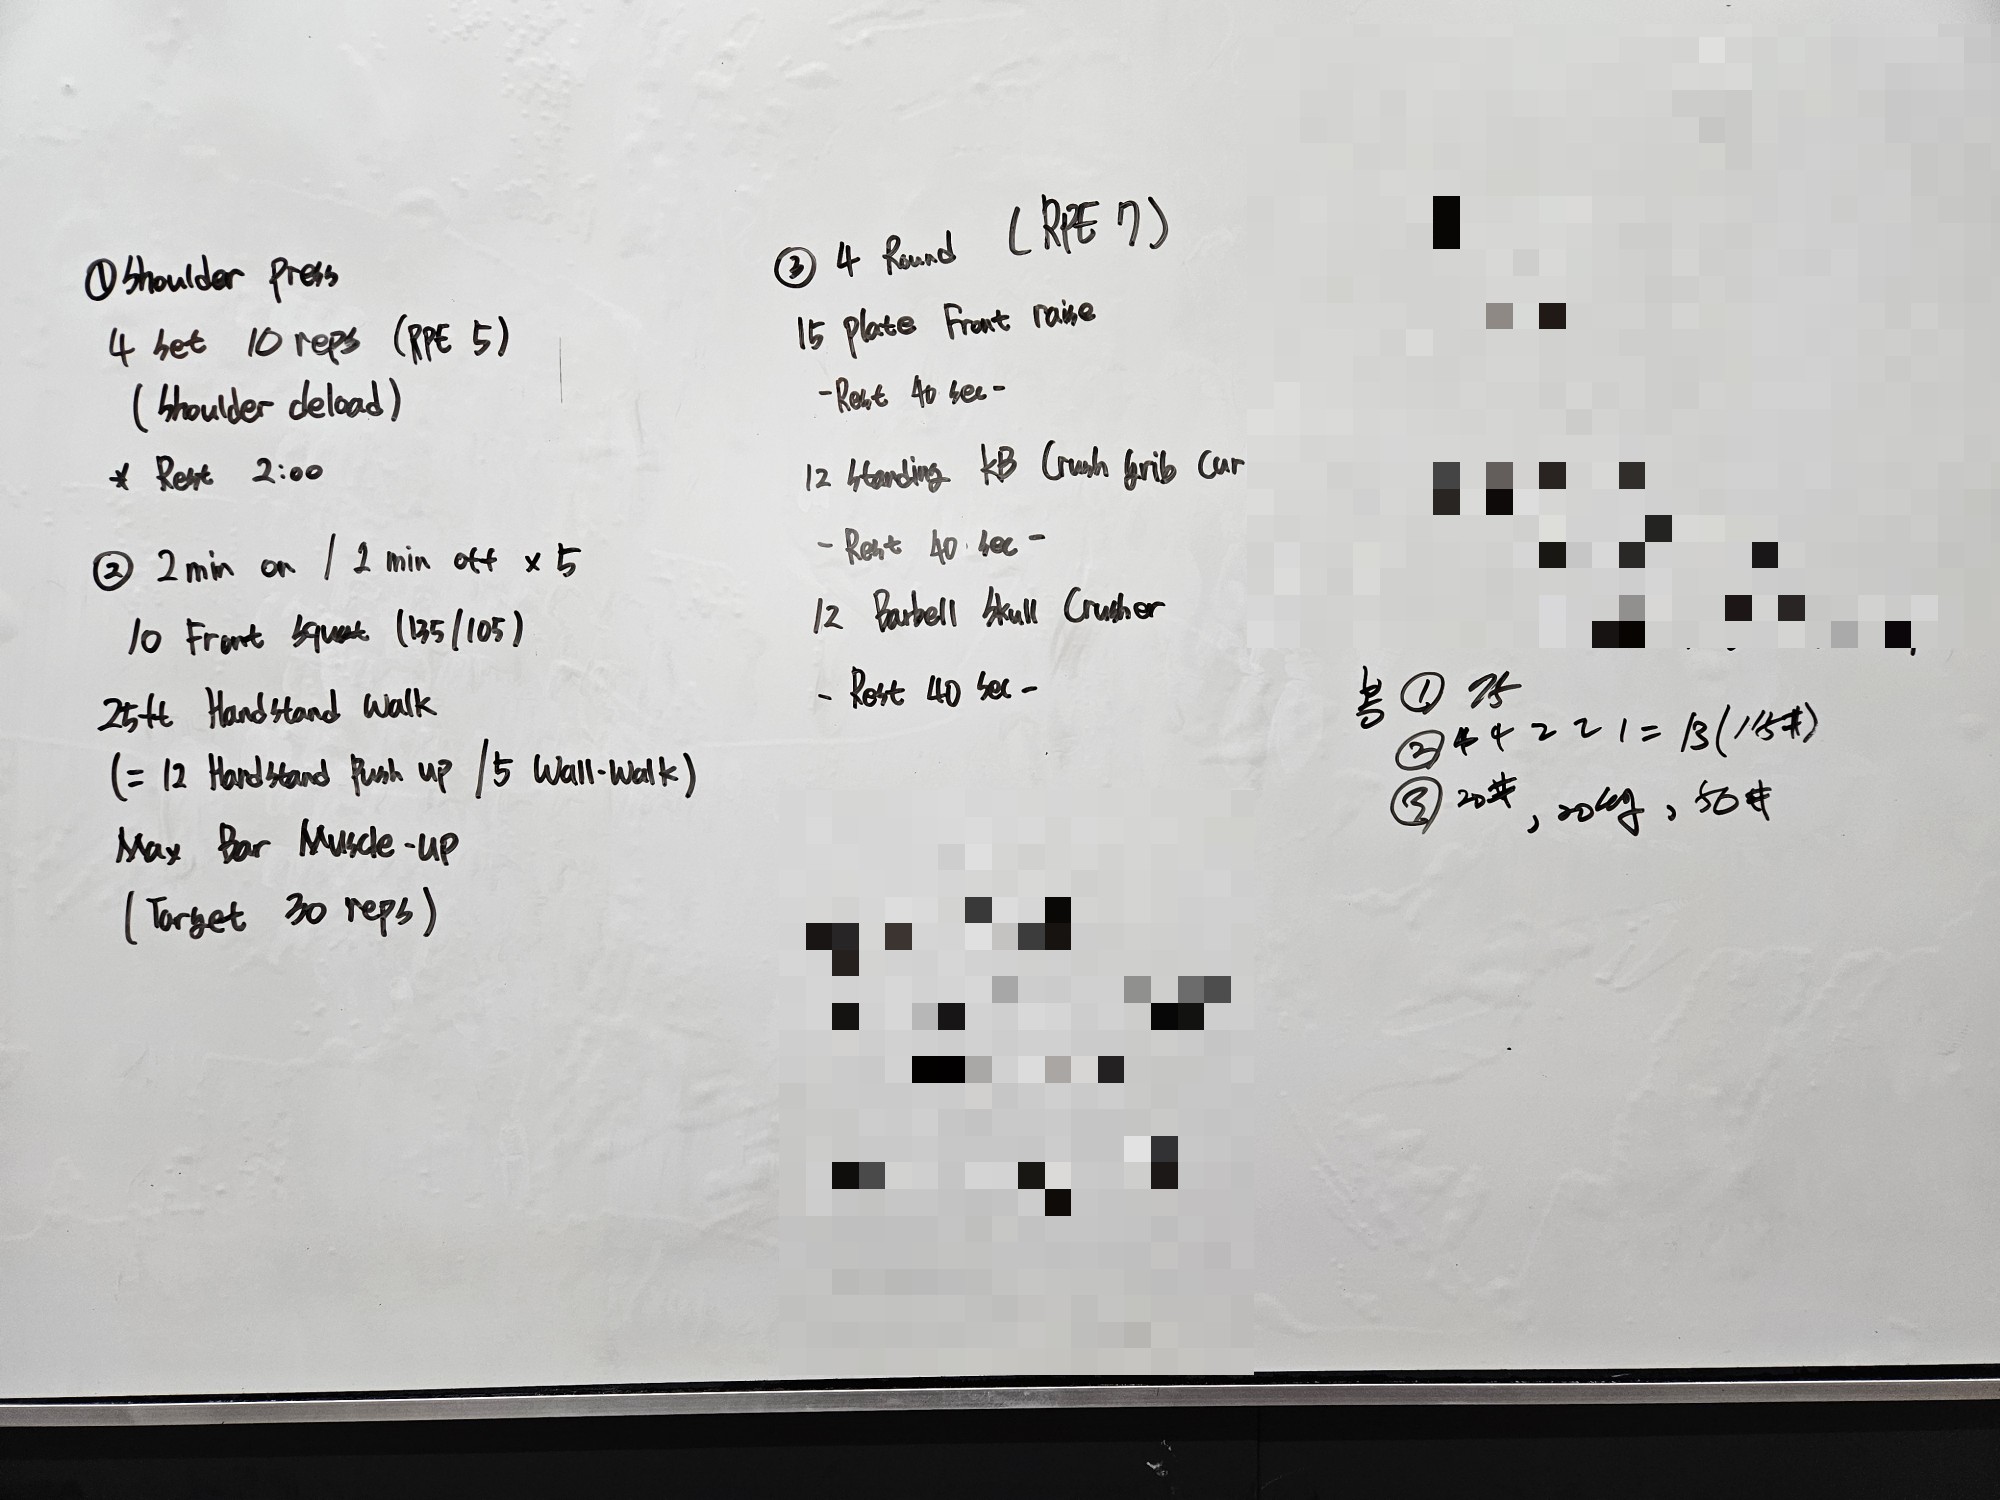 ① Shoulder press
4 set 10 reps (RPE 5)
(Shoulder deload)
* Rest 2:00
② 2 min on / 2 min off x 5
10 Front squat (135/105)
25ft Handstand Walk
(= 12 Handstand Push up / 5 Wall-Walk)
Max Bar Muscle-up
(Target 30 reps)
③ 4 Round (RPE 7)
15 plate Front raise
-Rest 40 sec-
12 Standing KB Crush Grib Cur
- Rest 40 sec -
12 Barbell Skull Crusher
- Rest 40 sec -
봉 ① 75
② 4 4 2 2 1 = 13 (115#)
③ 20#, 20kg, 50#